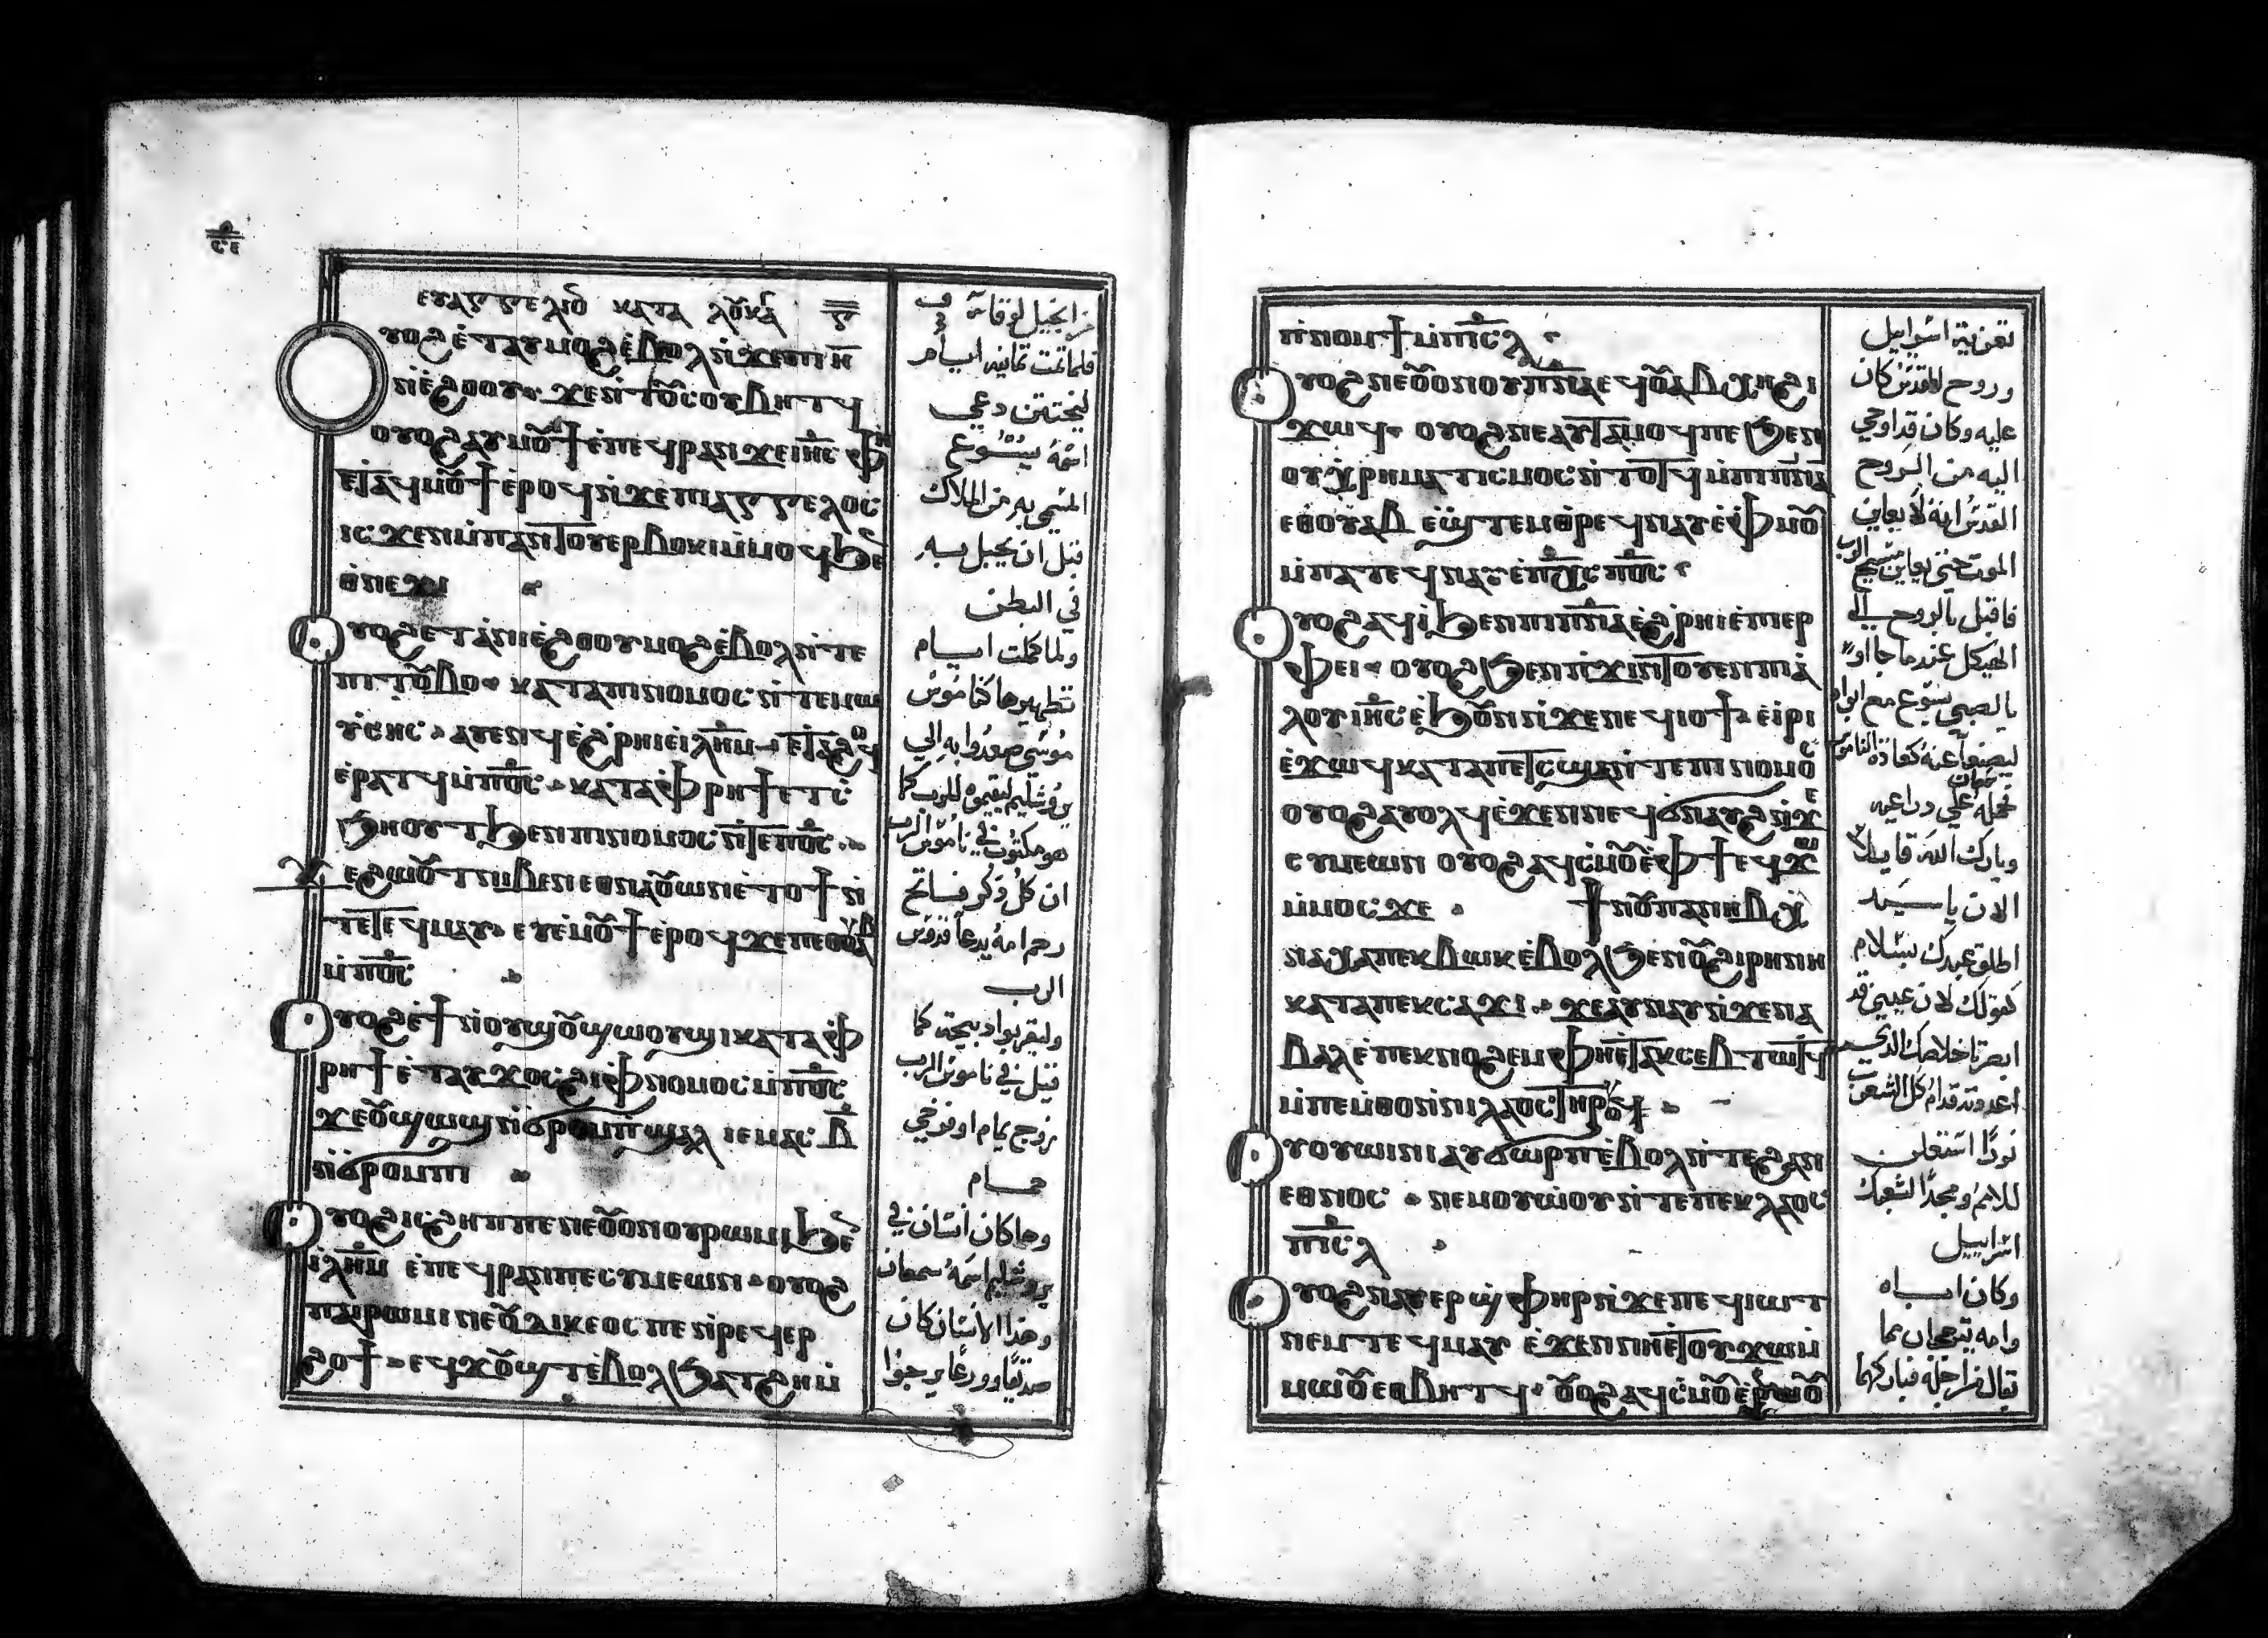 ⲉⲩⲁⲅⲅⲉⲗⲓⲟ ⲕⲁⲧⲁ ⲗⲟⲩⲕⲁ
ⲩⲟϩ ⲉ̇ⲧⲁⲩⲙⲟϩ ⲉ̇ⲃⲟⲗ ⲛ̇ϫⲉⲡⲓ ⲏ̅
ⲛ̇ⲉ̇ϩⲟⲟⲩ ϫⲉⲛ̇ⲧⲟⲩⲥⲟⲩⲃⲏⲧϥ
ⲟⲩⲟϩ ⲁⲩⲙⲟⲩϯ ⲉ̇ⲡⲉϥⲣⲁⲛ ϫⲉ ⲓⲏⲥ ⲫⲏ
ⲉⲧⲁϥⲙⲟⲩϯ ⲉ̇ⲣⲟϥ ⲛ̇ϫⲉⲡⲓⲁⲅⲅⲉⲗⲟⲥ
ⲓⲥϫⲉⲛ ⲙ̇ⲡⲁⲛⲧⲟⲩⲉⲣⲃⲟⲕⲓ ⲙ̇ⲙⲟϥ ϧⲉ
ⲑⲛⲉϫⲓ
ⲩⲟϩ ⲉⲧⲁⲛⲓⲉ̇ϩⲟⲟⲩ ⲙⲟϩ ⲉ̇ⲃⲟⲗ ⲛ̇ⲧⲉ
ⲡⲓⲧⲟⲩⲃⲟ ⲕⲁⲧⲁ ⲡⲓⲛⲟⲙⲟⲥ ⲛ̇ⲧⲉ ⲙⲱ
ⲩ̇ⲥⲏⲥ ⲁⲩⲉⲛϥ ⲉ̇ϩ̇ⲣⲏⲓ ⲉ̇ⲓⲗⲏⲙ ⲉⲧⲁϩⲱϥ
ⲉ̇ⲣⲁⲧϥ ⲙ̇ⲡⲟⲥ ⲕⲁⲧⲁ ⲫⲣⲏϯ ⲉⲧⲥ̇
ϧⲏⲟⲩⲧ ϧⲉⲛ ⲡⲓⲛⲟⲙⲟⲥ ⲛ̇ⲧⲉ ⲡⲟⲥ
ϫⲉ ϩⲱⲟⲩⲧ ⲛⲓⲃⲉⲛ ⲉⲑⲛⲁⲟⲩⲱⲛ ⲉ̇ⲧⲟϯ ⲛ̇
ⲧⲉ ⲧⲉϥⲙⲁⲩ ⲉⲩⲉ̇ⲙⲟⲩϯ ⲉⲣⲟϥ ϫⲉ ⲡⲉⲑⲟⲩⲁⲃ
ⲙ̇ⲡⲟⲥ
ⲩⲟϩ ⲉ̇ϯ ⲛ̇ⲟⲩϣⲟⲩϣⲱⲟⲩϣⲓ ⲕⲁⲧⲁ ⲫ
ⲣⲏϯ ⲉ̇ⲧⲁⲩϫⲟⲥ ϩⲓ ⲫⲛⲟⲙⲟⲥ ⲙ̇ⲡⲟⲥ
ϫⲉ ⲟⲩϣⲱϣ ⲛ̇ϭⲣⲟⲙⲡϣⲁⲗ ⲓⲉ ⲙⲁⲥ ⲃ̅
ⲛ̇ϭⲣⲟⲙⲡⲓ
ⲩⲟϩ ⲓⲥ ϩⲏⲡⲡⲉ ⲛⲉⲟⲩⲟⲛ ⲟⲩⲣⲱⲙⲓ ϧⲉ
ⲓⲗⲏⲙ ⲉ̇ⲡⲉϥⲣⲁⲛ ⲡⲉ ⲥⲩⲙⲉⲱⲛ ⲟⲩⲟϩ
ⲡⲁⲓⲣⲱⲙⲓ ⲛⲉ ⲟⲩⲇⲓⲕⲉⲟⲥ ⲡⲉ ⲛ̇ⲣⲉϥⲉⲣ
ϩⲟϯ ⲉϥϫⲟⲩϣⲧ ⲉ̇ⲃⲟⲗ ϧⲁⲧϩⲏ ⲙ̇
من انجيل لوقا
فلما تمت ثمانيه ايام
ليختتن دعي
اسمه يسوع
المسمي به من الملاك
قبل ان يحبل به
في البطن
ولما كملت ايام
تطهيرها كناموس
موسي صعدوا به الي
يروشليم ليقيموه للرب كما
هو مكتوب في ناموس الرب
ان كل ذكر فاتح
رحم امه يدعا قدوس
الرب
وليقربوا دبيحة كما
قيل في ناموس الرب
زوج يمام او فرخي
حمام
وها كان انسان في
يروشليم اسمه سمعان
وهذا الانسان كان
صديقا وورعا يرجوا
ⲡ̇ⲛⲟⲙϯ ⲙ̇ⲡⲓⲥⲗ
ⲩⲟϩ ⲛⲉⲟⲩⲟⲛ ⲟⲩⲡⲛⲁ ⲉϥⲟⲩⲁⲃ ⲭⲏ ϩⲓ
ϫⲱϥ ⲟⲩⲟϩ ⲛⲉⲁⲩⲧⲁⲙⲟϥ ⲡⲉ ϧⲉⲛ
ⲟⲩⲭⲣⲏⲙⲁⲧⲓⲥⲙⲟⲥ ⲛ̇ⲧⲟⲧϥ ⲙ̇ⲡⲓⲡⲛⲁ
ⲉⲑⲟⲩⲁⲃ ⲉ̇ϣⲧⲉⲙⲑⲣⲉϥⲛⲁⲩ ⲉ̇ⲫⲙⲟⲩ
ⲙ̇ⲡⲁⲧⲉϥⲛⲁⲩ ⲉ̇ⲡⲭⲥ ⲡⲟⲥ
ⲩⲟϩ ⲁϥⲓ̇ ϧⲉⲛ ⲡⲓⲡⲛⲁ ⲉ̇ϩ̇ⲣⲏⲓ ⲉ̇ⲡⲓⲉⲣ
ⲫⲉⲓ ⲟⲩⲟϩ ϧⲉⲛ ⲡ̇ϫⲓⲛⲧⲟⲩⲉⲛ ⲡⲓⲁ̇
ⲗⲟⲩ ⲓⲏⲥ ⲉ̇ϧⲟⲩⲛ ⲛ̇ϫⲉ ⲛⲉϥⲓⲟϯ ⲉ̇ⲓⲣⲓ
ⲉ̇ϫⲱϥ ⲕⲁⲧⲁ ⲡⲉⲧⲥϣⲉ ⲛ̇ⲧⲉ ⲡⲓⲛⲟⲙⲟⲥ
ⲟⲩⲟϩ ⲁⲩⲟⲗϥ ⲉ̇ϫⲉⲛ ⲛⲉϥϭⲛⲁⲩϩ ⲛ̇ϫⲉ
ⲥⲩⲙⲉⲱⲛ ⲟⲩⲟϩ ⲁϥⲥ̇ⲙⲟⲩ ⲉ̇ⲫϯ ⲉϥϫⲱ
ⲙ̇ⲙⲟⲥ ϫⲉ ϯⲛⲟⲩ ⲡⲁⲛⲏⲃ ⲭ
ⲛⲁⲭⲁ ⲡⲉⲕⲃⲱⲕ ⲉ̇ⲃⲟⲗ ϧⲉⲛ ⲟⲩϩⲓⲣⲏⲛⲏ
ⲕⲁⲧⲁ ⲡⲉⲕⲥⲁϫⲓ ϫⲉ ⲁⲩⲛⲁⲩ ⲛ̇ϫⲉ ⲛⲁ
ⲃⲁⲗ ⲉ̇ⲡⲉⲕⲛⲟϩⲉⲙ ⲫⲏⲉⲧⲁⲕⲥⲉⲃⲧⲱⲧϥ
ⲙ̇ⲡⲉⲙ̇ⲑⲟ ⲛ̇ⲛⲓⲗⲁⲟⲥ ⲧⲏⲣⲟⲩ
ⲩⲟⲩⲱⲓⲛⲓ ⲁⲩϭⲱⲣⲡ ⲉ̇ⲃⲟⲗ ⲛ̇ⲧⲉ ϩⲁⲛ
ⲉⲑⲛⲟⲥ ⲛⲉⲙ ⲟⲩⲱ̇ⲟⲩ ⲛ̇ⲧⲉ ⲡⲉⲕⲗⲁⲟⲥ
ⲡⲓⲥⲗ
ⲩⲟϩ ⲛⲁⲩⲉⲣϣⲫⲏⲣⲓ ⲛ̇ϫⲉ ⲡⲉϥⲓⲱⲧ
ⲛⲉⲙ ⲧⲉϥⲙⲁⲩ ⲉ̇ϫⲉⲛ ⲛⲏⲉ̇ⲧⲟⲩϫⲱ ⲙ̇
ⲙⲱⲟⲩ ⲉⲑⲃⲏⲧϥ ⲟⲩⲟϩ ⲁϥⲥ̇ⲙⲟⲩ ⲉ̇ⲣⲱⲟⲩ
تعزية اسرايل
وروح القدس كان
عليه وكان قد اوحي
اليه من الروح
القدس انه لا يعاين
الموت حتي يعاين مسيح الرب
فاقبل بالروح الي
الهيكل عند ما جااو
بالصبي يسوع مع ابواه
ليصنعا عنه كعادة الناموس
حمله سمعان علي دراعيه
وبارك الله قايلا
الان يا سيد
اطلق عبدك بسلام
كقولك لان عيني قد
ابصرتا خلاصك الدي
اعددته قدام كل الشعوب
نورا استعلن
للامم ومجدا لشعبك
اسرايل
وكان اباه
وامه يتعجبان مما
يقال من اجله فباركهما